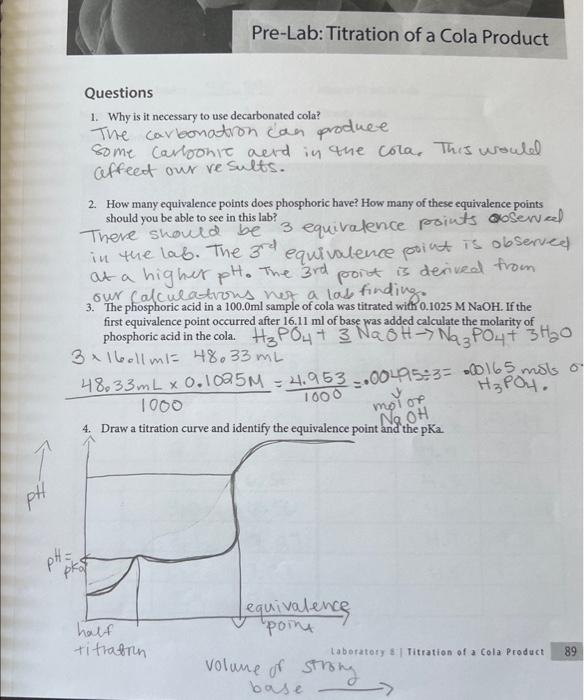 Pre-Lab: Titration of a Cola Product
Questions
1. Why is it necessary to use decarbonated cola?
The carbonation can produce
some carbonic acid in the cola. This would
affect our results.
2. How many equivalence points does phosphoric have? How many of these equivalence points
should you be able to see in this lab?
There should be 3 equivalence points observed
in the lab. The 3rd equivalence point is observed
at a higher pH. The 3rd point is derived from
our calculations not a lab finding.
3. The phosphoric acid in a 100.0ml sample of cola was titrated with 0.1025 M NaOH. If the
first equivalence point occurred after 16.11 ml of base was added calculate the molarity of
phosphoric acid in the cola. H3PO4 + 3 NaOH → Na3PO4 + 3H2O
3 × 16.11ml = 48.33 mL
48.33mL × 0.1025M = 4.953 = .00495÷3= .00165 mols o
1000 1000 H3PO4.
mol of
NaOH
4. Draw a titration curve and identify the equivalence point and the pKa.
pH
pH =
pka
equivalence
point
half
titration
Laboratory 8 | Titration of a Cola Product 89
volume of strong
base